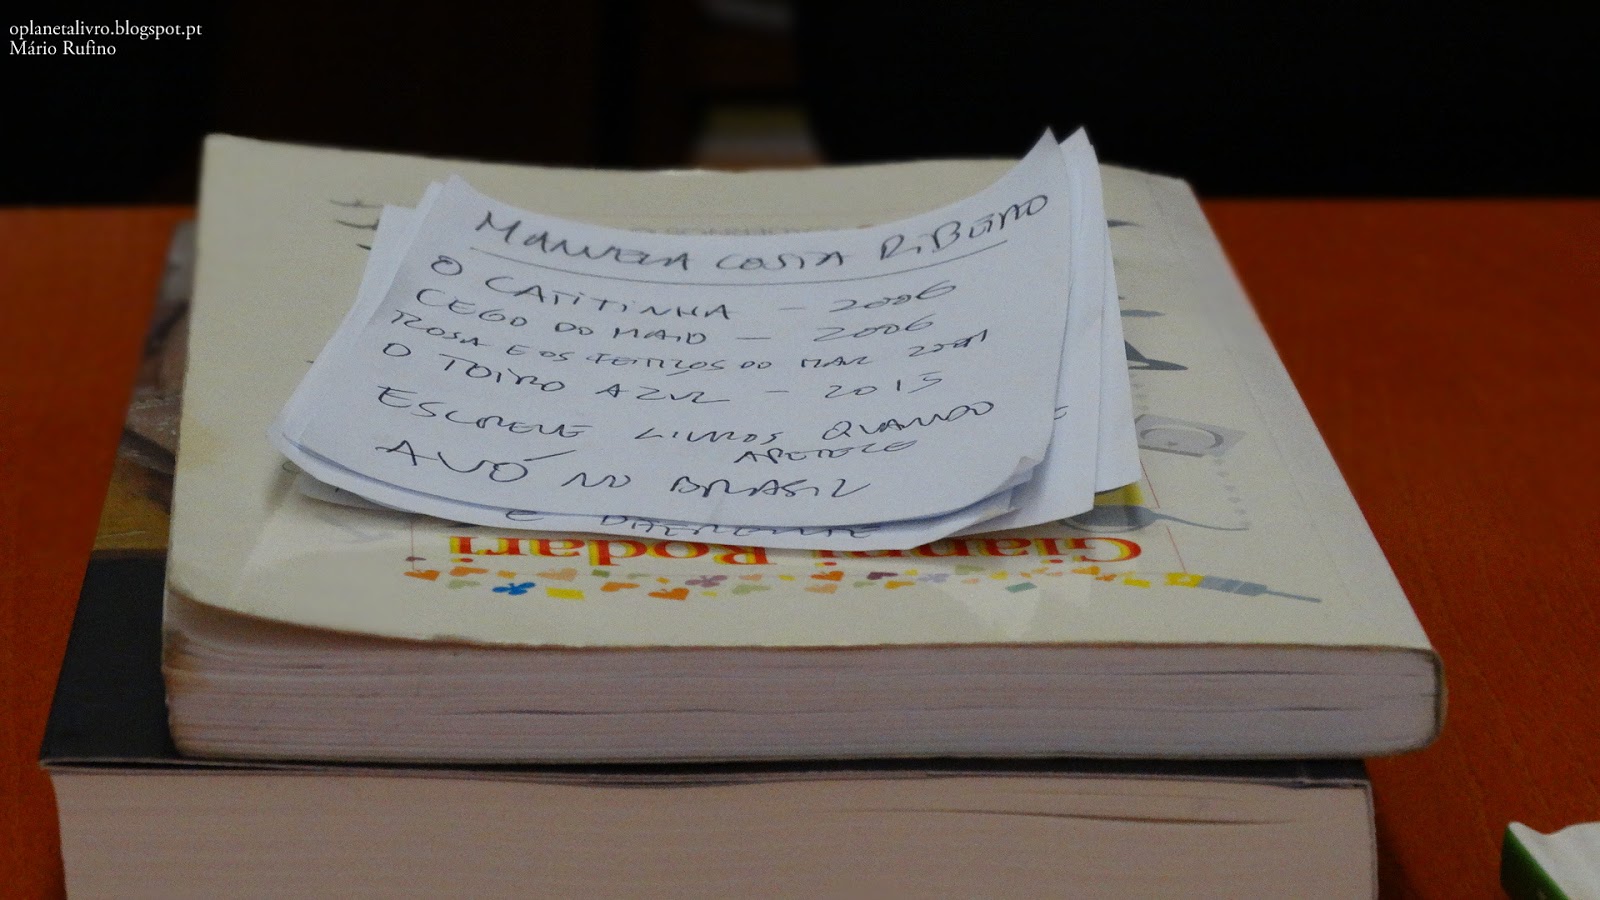 oplanetalivro.blogspot.pt
Mário Rufino
MANUELA COSTA RIBEIRO
O CATITINHA – 2006
CEGO DO MAIO – 2006
ROSA E OS FEITIÇOS DO MAR
O TOIRO AZUL – 2015
ESCREVE LIVROS QUANDO
APETECE
AVÓ NO BRASIL
E DIFERENTE
Gianni Rodari